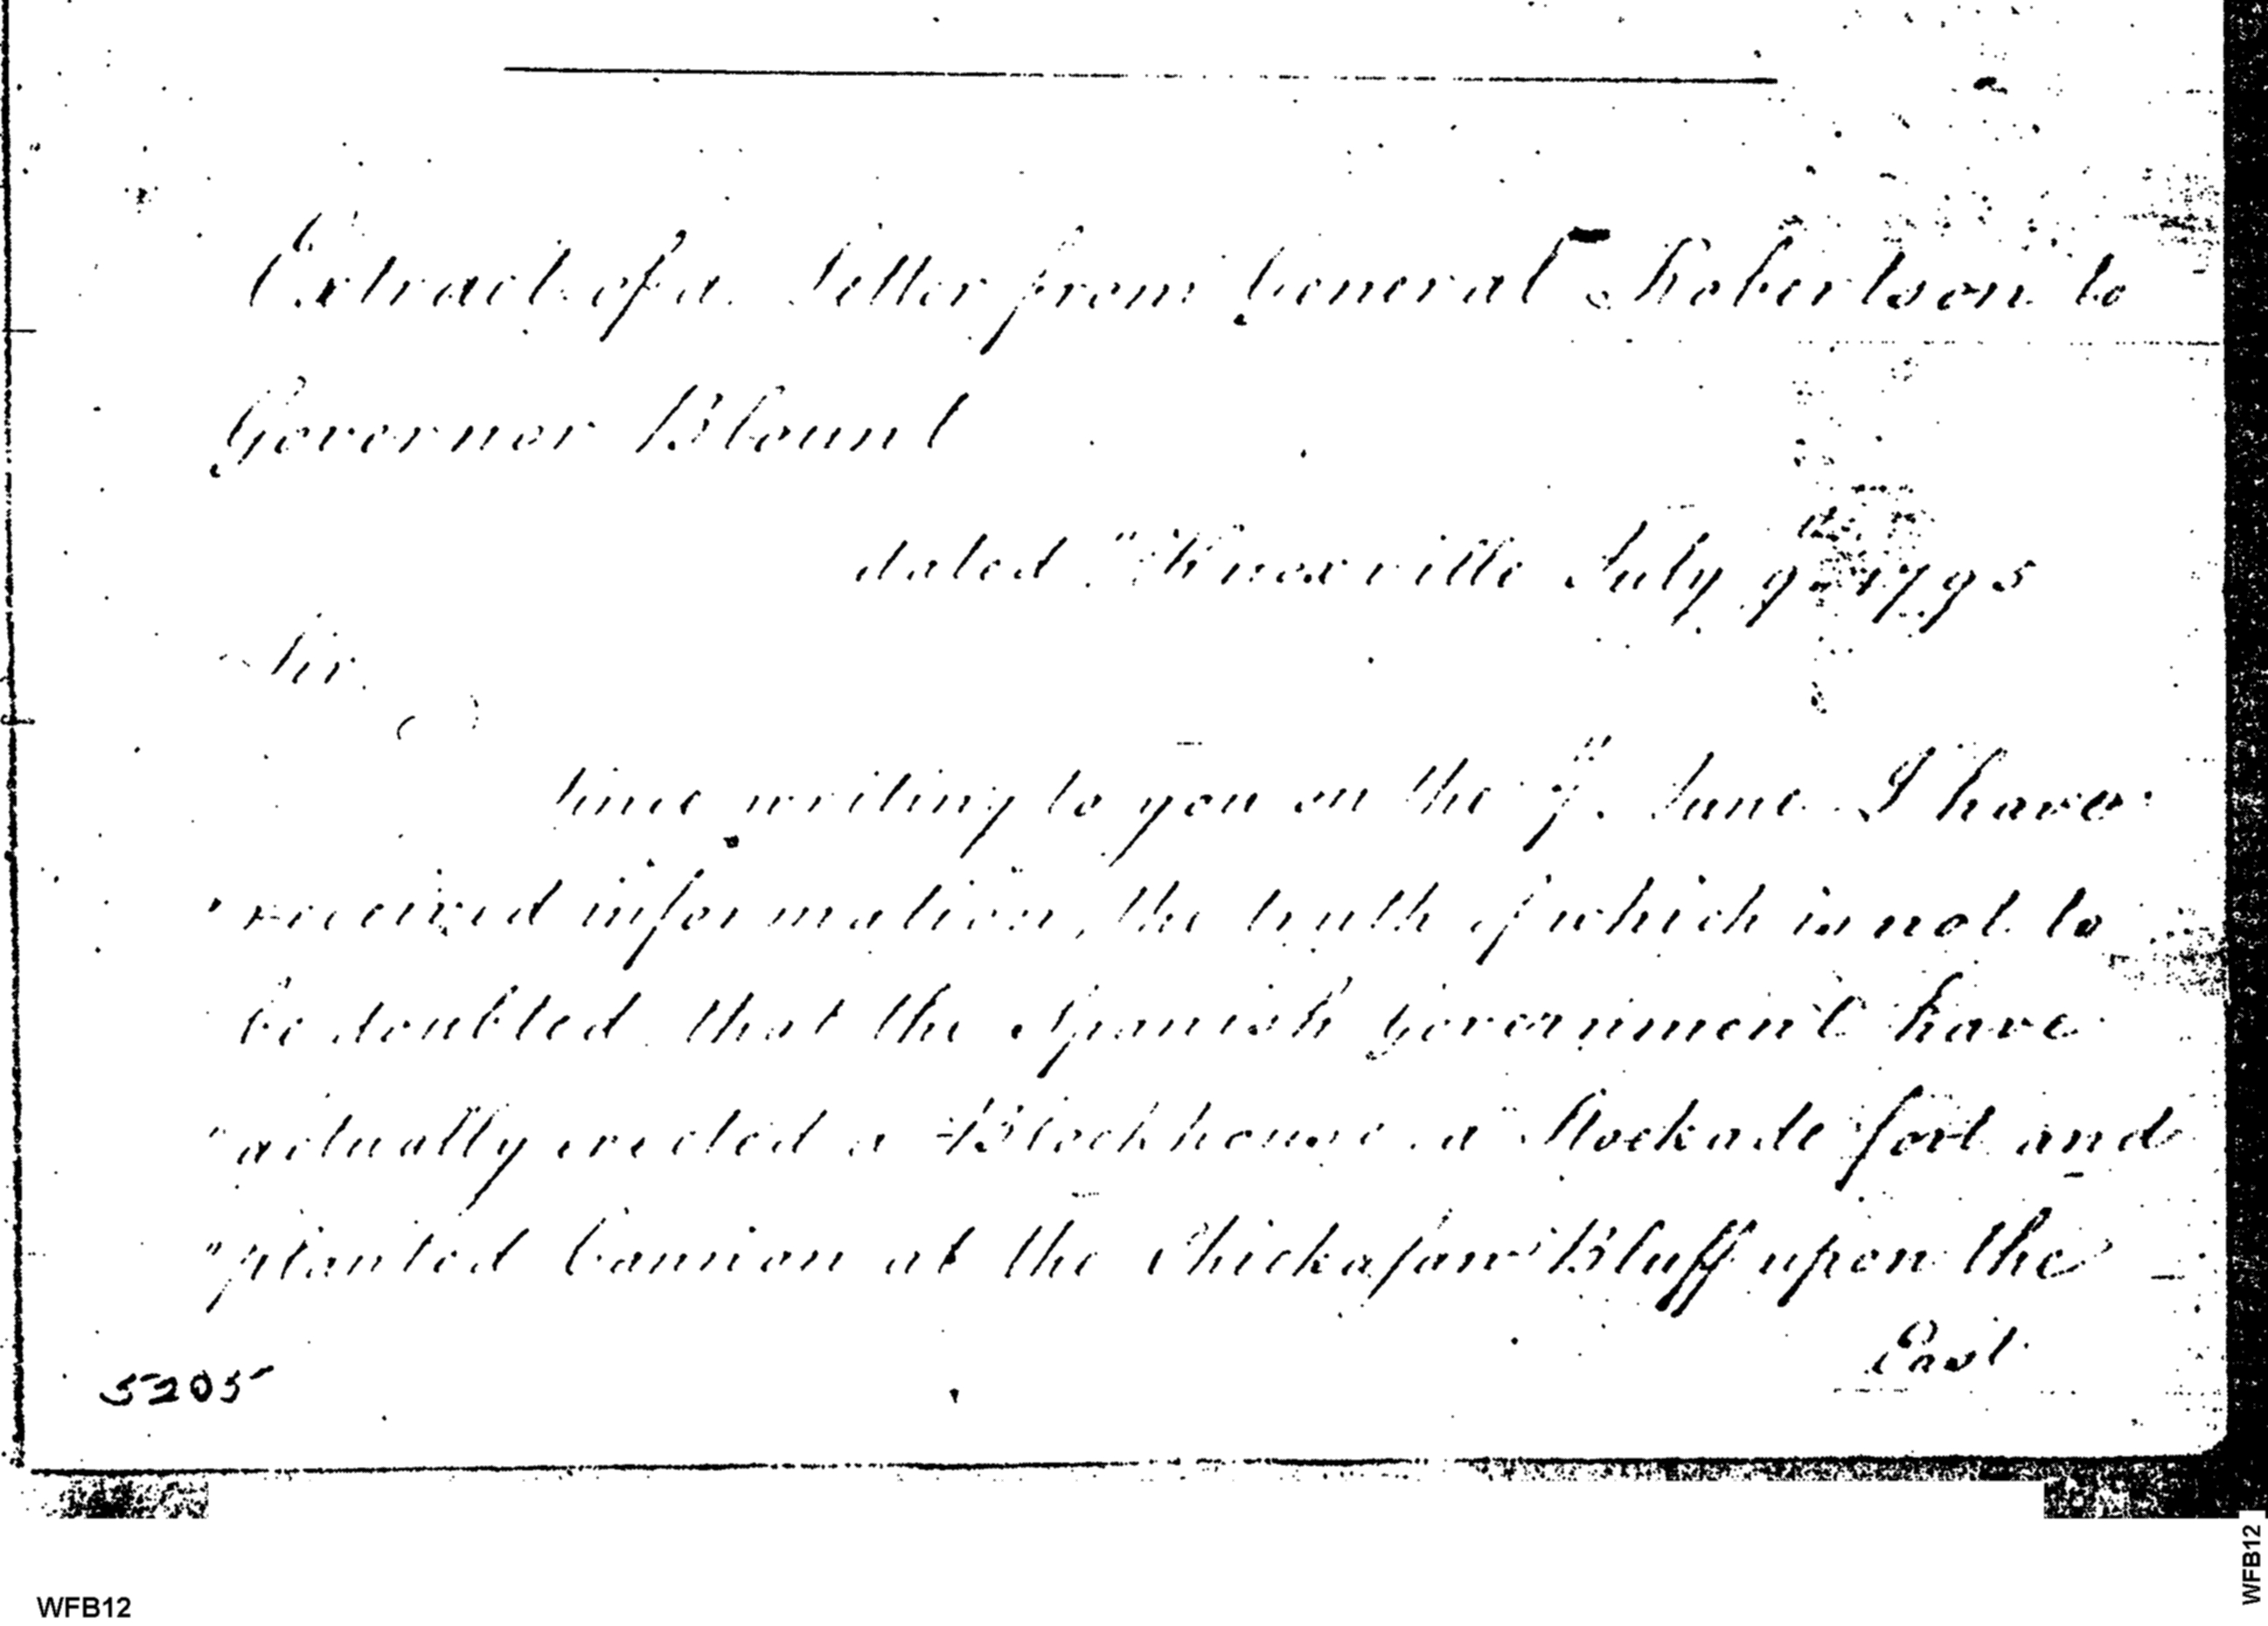 Extract of a Letter from General Robertson to
Governor Blount
dated "Knoxville July 9th 1795
Sir
Since writing to you on the 7th June I have
"received information, the truth of which is not to
be doubted that the Spanish Government have
"actually erected a Blockhouse a Stockade fort and
"planted Cannon at the Chickasaw Bluff upon the
East
5205
WFB12
WFB12